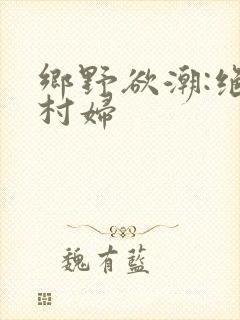 鄉野欲潮:絕
村婦
魏有藍